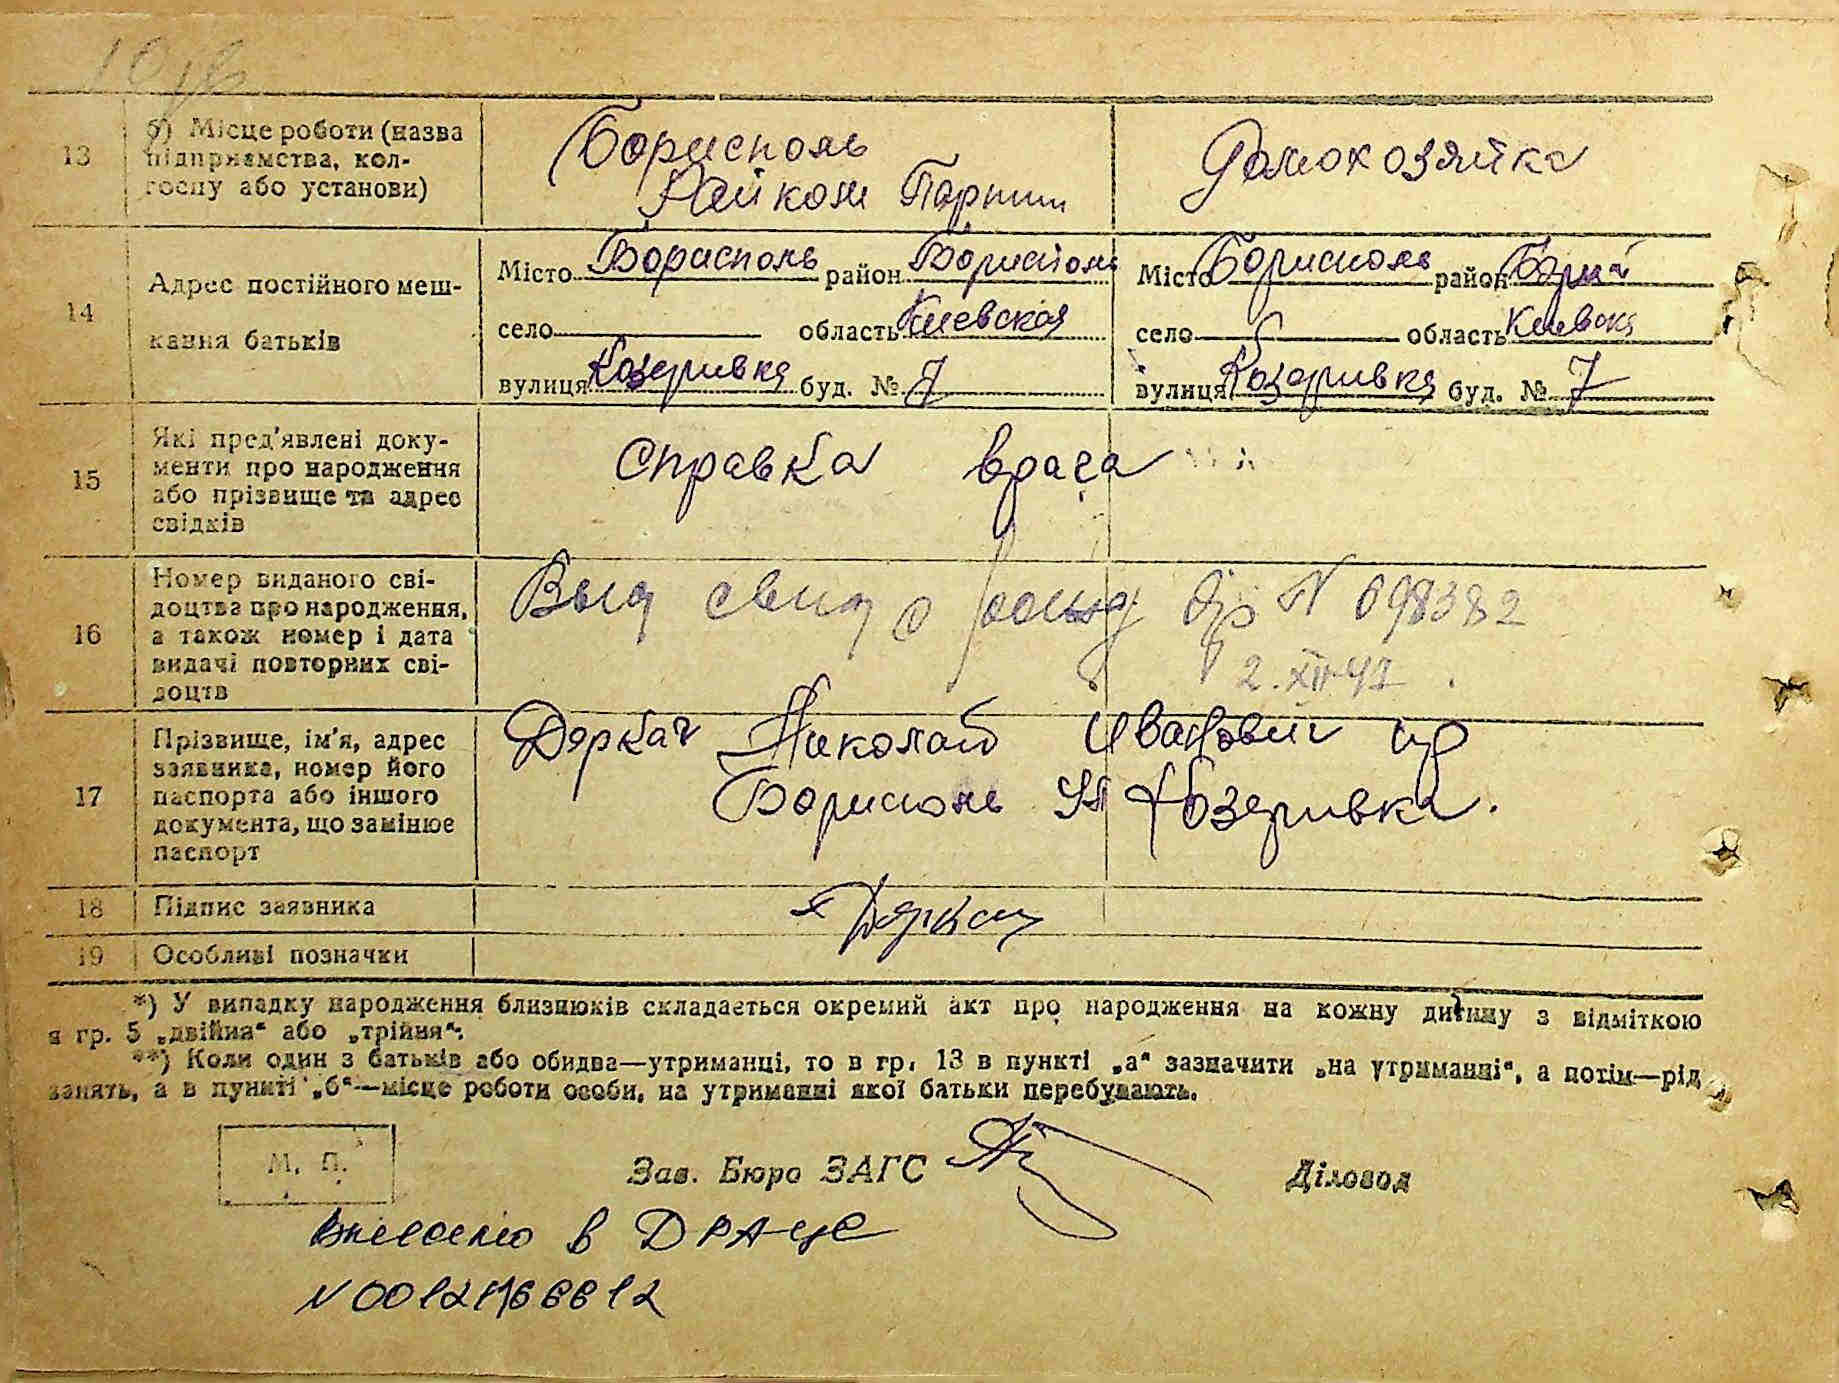 13
б) Місце роботи (назва
підприємства, кол-
госпу або установи)
Борисполь
Райком Партии
Домохозяйка
14
Адрес постійного меш-
кання батьків
Місто Борисполь район Борисполь
село область Киевская
вулиця Козеривка буд. № 7
Місто Борисполь район
село область Киевска
вулиця Козеривка буд. № 7
15
Які пред'явлені доку-
менти про народження
або прізвище та адрес
свідків
Справка врача
16
Номер виданого сві-
доцтва про народження,
а також номер і дата
видачі повторних сві-
доцтв
Выд свид о рожд N 098382
2.XII-47
17
Прізвище, ім'я, адрес
заявника, номер його
паспорта або іншого
документа, що замінює
паспорт
Деркач Николай Иванович
Борисполь ул Козеривка.
18
Підпис заявника
Деркач
19
Особливі позначки
*) У випадку народження близнюків складається окремий акт про народження на кожну дитину з відміткою
в гр. 5 „двійня“ або „трійня“.
**) Коли один з батьків або обидва—утриманці, то в гр. 13 в пункті „а“ зазначити „на утриманні“, а потім—рід
занять, а в пункті „б“—місце роботи особи, на утриманні якої батьки перебувають.
М. П.
Зав. Бюро ЗАГС
Діловод
Внесено в ДРАЦС
N 00121766612